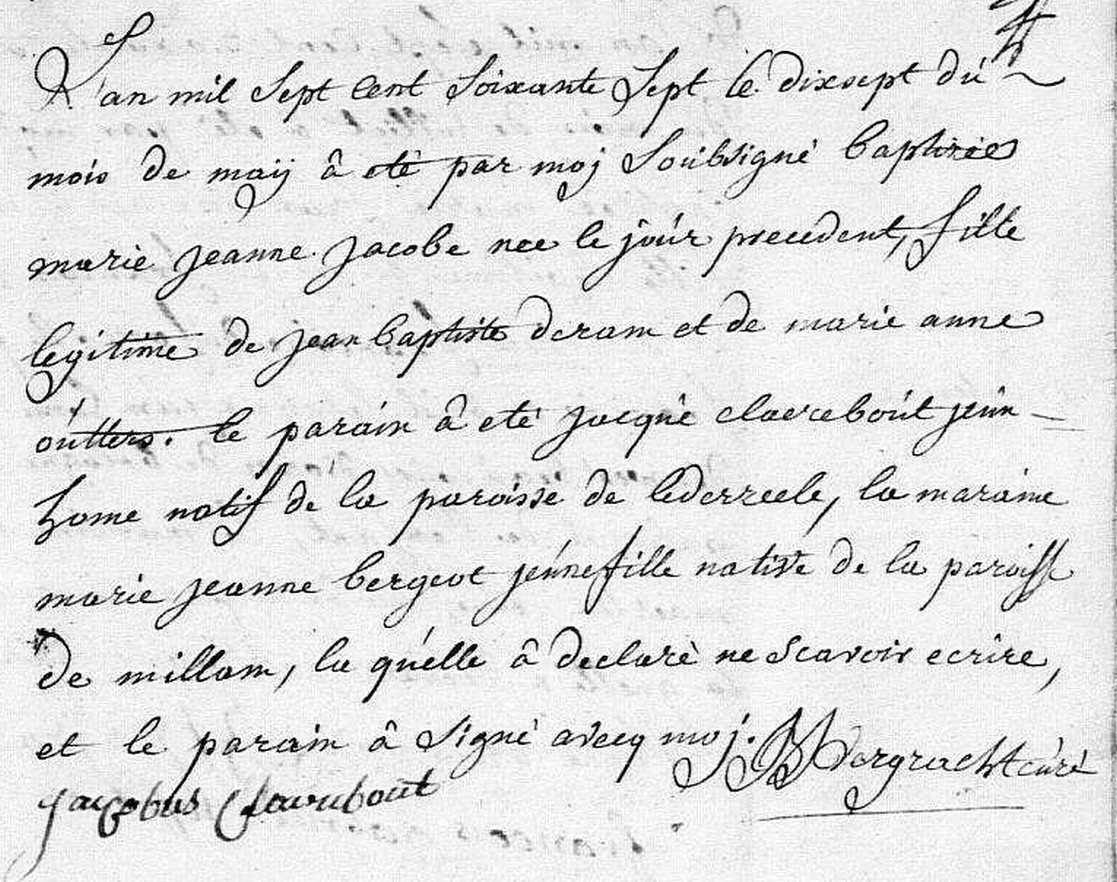 L'an mil sept cent soixante sept le dixsept du
mois de maÿ â eté par moj soubsigné baptisée
marie jeanne jacobe née le joúr precedent, fille
legitime de jean baptiste deram et de marie anne
oútters. le parain â eté jacque claereboút jeún
home natif de la paroisse de lederzeele, la maraine
marie jeanne bergeot jeúne fille native de la paroisse
de millam, la qúelle â declaré ne scavoir ecrire,
et le parain â signé avecq moj. Vergracht cúré
jacobus Clarebout